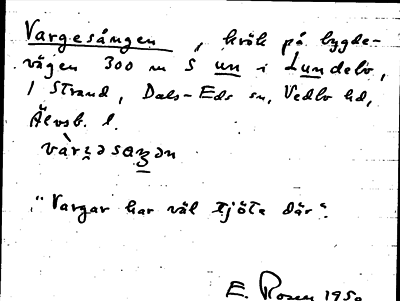 Vargesången, krök på bygde-
vägen 300 m S un i Lundebo,
1 Strand, Dals-Eds sn, Vedbo hd,
Älvsb. l.
"Vargar har väl tjöte där".
E. Rosen 195